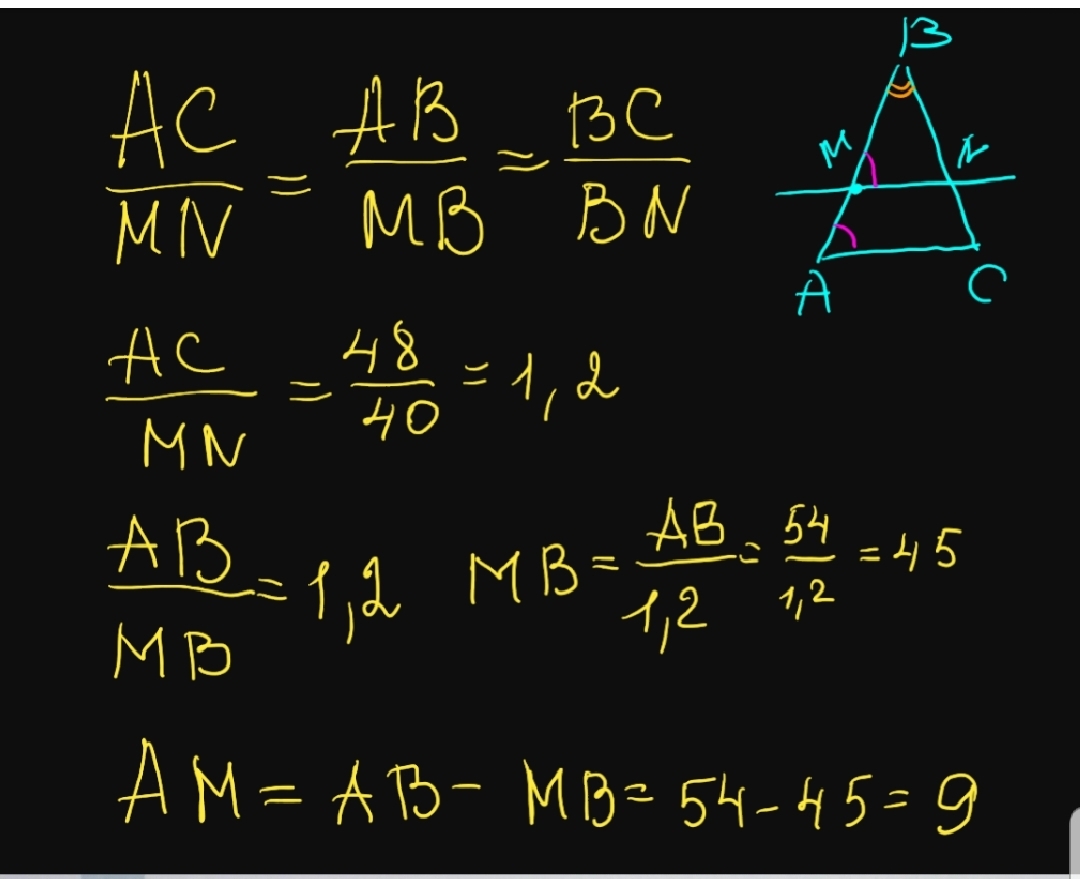 AC/MN = AB/MB = BC/BN
AC/MN = 48/40 = 1,2
AB/MB = 1,2 MB = AB/1,2 = 54/1,2 = 45
AM = AB - MB = 54 - 45 = 9
B
M N
A C